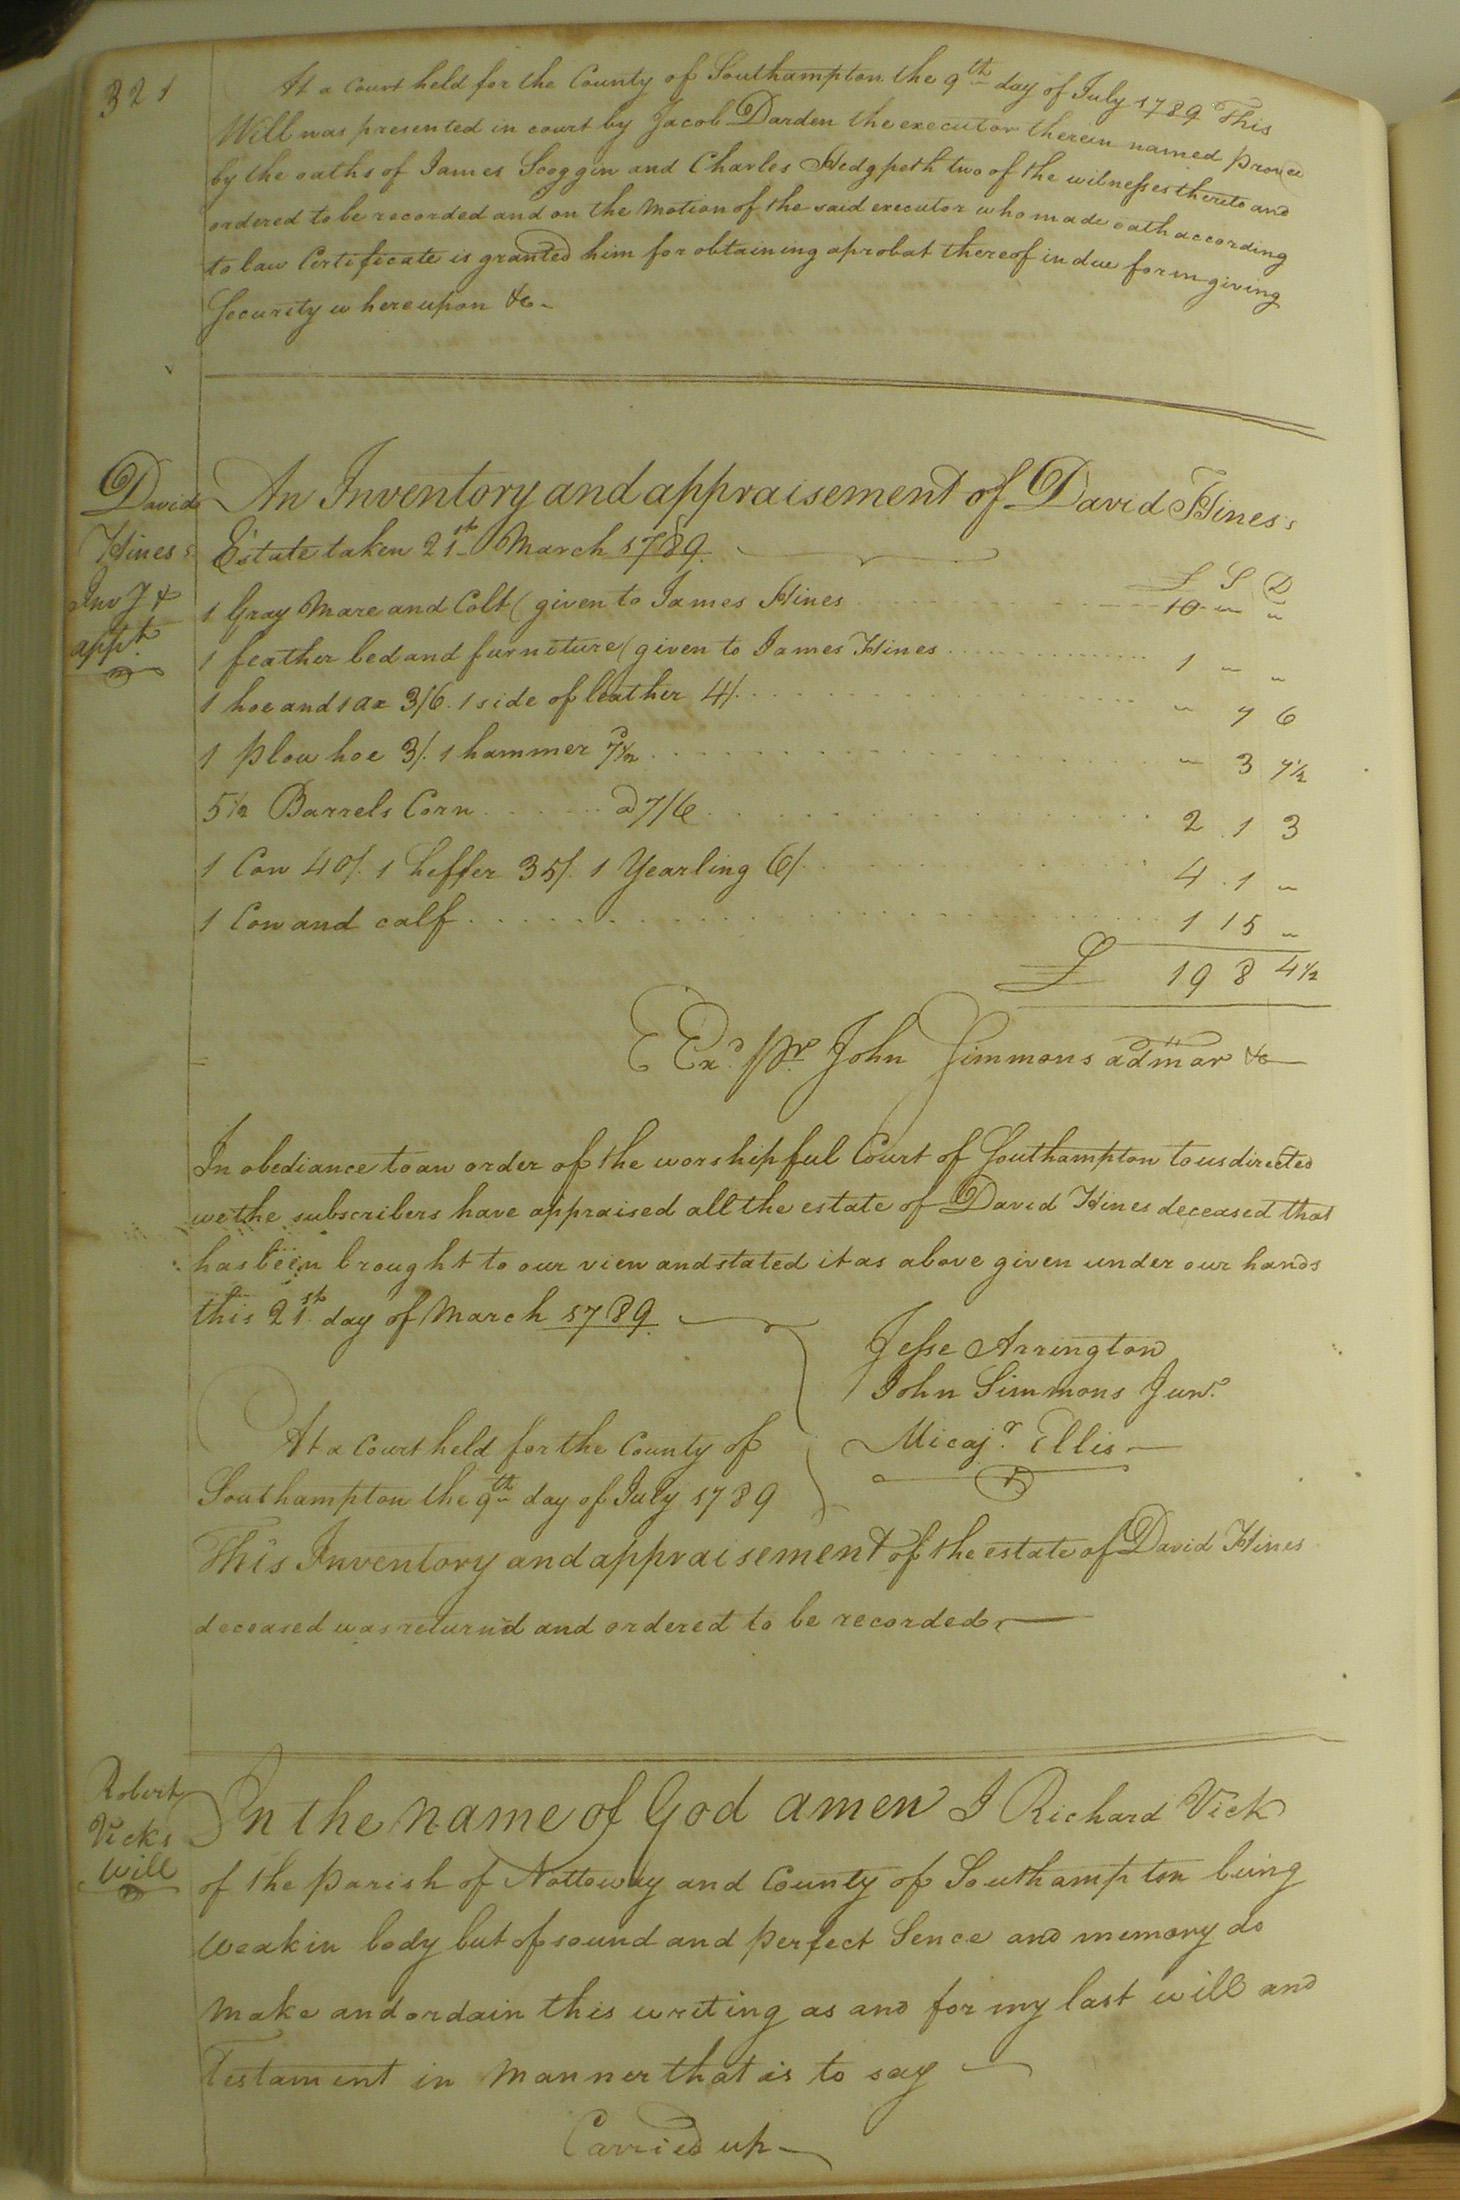 321
At a Court held for the County of Southampton the 9th day of July 1789 This
Will was presented in court by Jacob Darden the executor therein named proved
by the oaths of James Scoggin and Charles Hedgpeth two of the witnesses thereto and
ordered to be recorded and on the Motion of the said executor who made oath according
to law Certificate is granted him for obtaining a probat thereof in due form giving
Security whereupon &c
David
Hines's
Invy &
appt.
An Inventory and appraisement of David Hines's
Estate taken 21st March 1789
£ S D
1 Gray Mare and Colt (given to James Hines 10 " "
1 feather bed and furniture (given to James Hines 1 " "
1 hoe and 1 ax 3/6. 1 side of leather 4/. " 7 6
1 plow hoe 3/. 1 hammer 7½d " 3 7½
5½ Barrels Corn a 7/6 2 1 3
1 Cow 40/. 1 heffer 35/. 1 Yearling 6/. 4 1 "
1 Cow and calf 1 15 "
£ 19 8 4½
Exd. Pr. John Simmons admar &c
In obediance to an order of the worshipful Court of Southampton to us directed
we the subscribers have appraised all the estate of David Hines deceased that
has been brought to our view and stated it as above given under our hands
this 21st day of March 1789
Jesse Arrington
John Simmons Junr.
Micajr. Ellis
At a Court held for the County of
Southampton the 9th day of July 1789
This Inventory and appraisement of the estate of David Hines
deceased was return'd and ordered to be recorded
Robert
Vicks
Will
In the name of God amen I Richard Vick
of the parish of Nottoway and County of Southampton being
Weak in body but of sound and perfect Sence and memory do
Make and ordain this writing as and for my last will and
Testament in Manner that is to say
Carried up